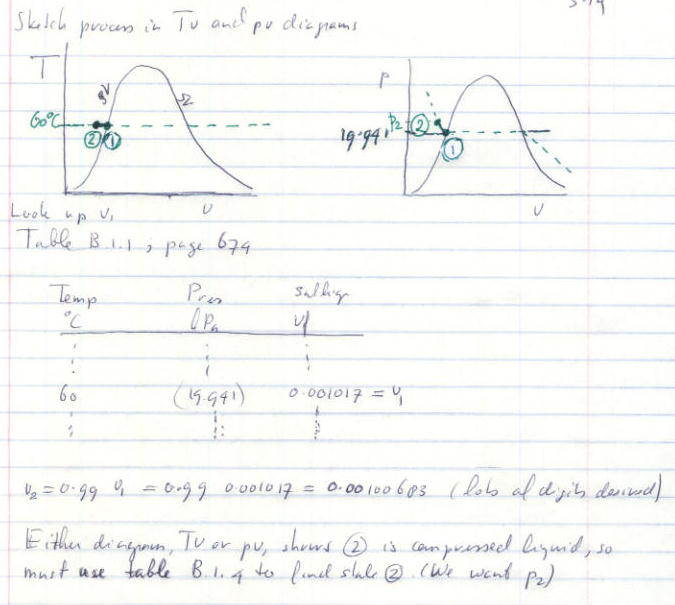 3-14
Sketch process in Tv and pv diagrams
T
60°C
② ①
v
p
19.941
p2 ②
①
v
Look up v1
Table B.1.1; page 674
Temp Pres sat liq
°C kPa vf
60 (19.941) 0.001017 = v1
v2 = 0.99 v1 = 0.99 0.001017 = 0.00100683 (lots of digits desired)
Either diagram, Tv or pv, shows ② is compressed liquid, so
must use table B.1.4 to find state ②. (We want p2)